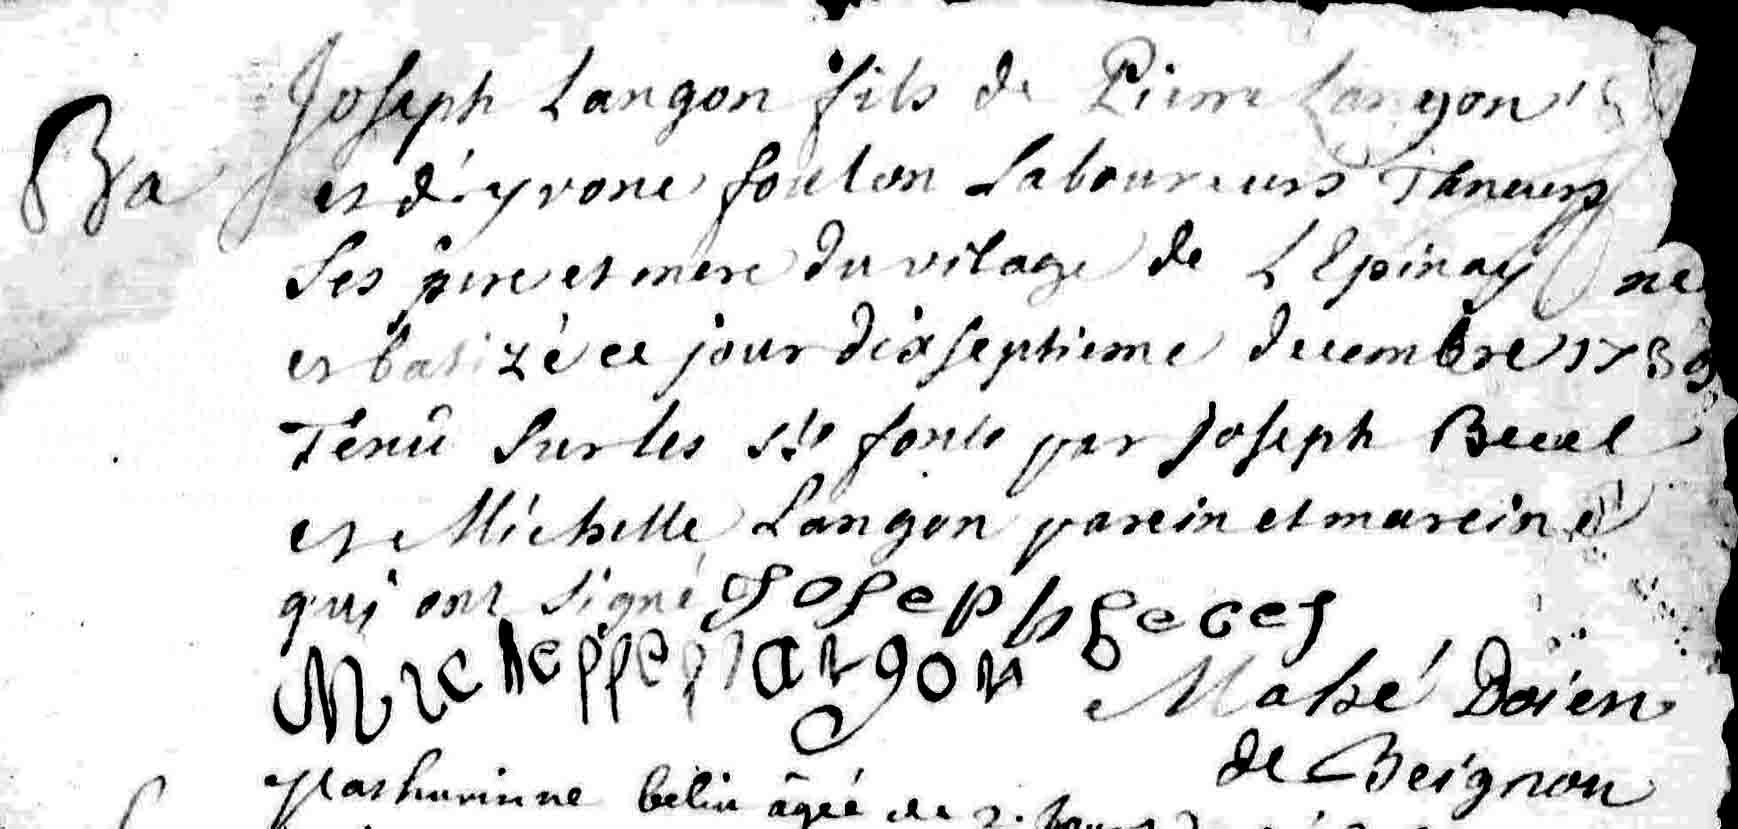 Joseph Langon fils de Pierre Langon
Ba et d'yvone foulon Laboureurs Taneurs
Ses pere et mere du vilage de L Epinay né
et batizé ce jour dixseptieme decembre 1739
Tenû Sur les sts fonts par Joseph Becel
et Michelle Langon parein et mareine
qui ont Signé Joseph becel
Michelle Langon Mahé Doien
de Beignon
Mathurinne belin âgée de 2.